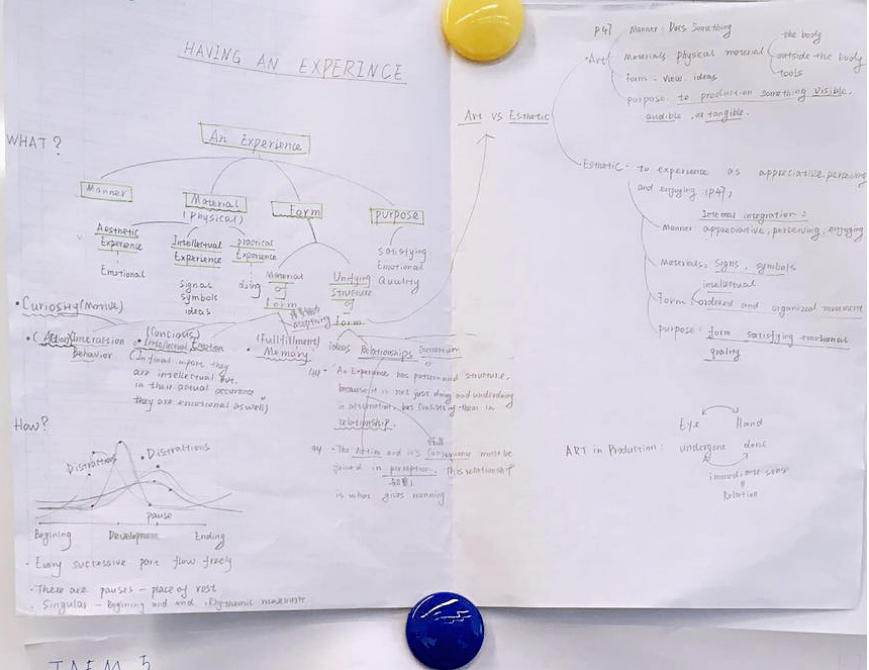 HAVING AN EXPERINCE
WHAT?
An Experience
Manner
Material
(physical)
Form
purpose
Aesthetic
Experience
Emotional
Intellectual
Experience
signas
symbols
ideas
practical
Experience
doing
Material
of
Form
Unifying
Structure
of
Form
satisfying
Emotional
Quality
• Curiosity (Motive)
• (Action) interaction
Behavior
• Intellectual Emotion
(In final import they
are intellectual but
in their actual occurence
they are emotional as well)"
• (fullfillment)
Memory
ideas Relationships
"An Experience has pattern and structure,
because it is not just doing and undergoing
in alternation, but consists of them in
relationship.
• The Action and it's consequence must be
joined in perception. This relationship
is what gives meaning
How?
Distractions
• Distrations
pause
Begining Development Ending
• Every successive part flow freely
• There are pauses - place of rest
• Singular - Begining and end
Art vs Esthetic
P47
• Art
Manner: Does Something
Materials physical material
the body
outside the body
tools
form - view, ideas
purpose: to production something visible,
audible, or tangible.
Esthetic - to experience as appreciative, perceiving
and enjoying (P47)
Internal integration:
Manner appreciative, perserving, enjoying
Materials, signs, symbols
intellectual
Form ordered and organized movement
purpose: form satisfying emotional
quality
Eye Hand
ART in Production: undergone done
immediate sense
Relation